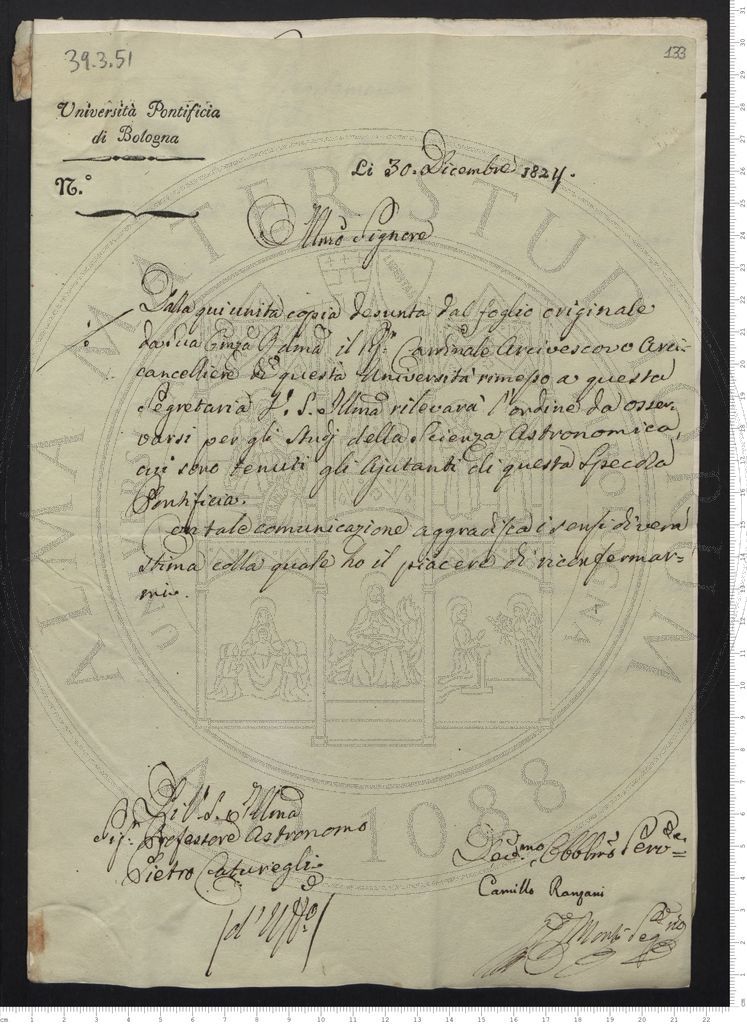 39.3.51
133
Università Pontificia
di Bologna
N.°
Li 30. Dicembre 1824.
Illmo Signore
Dalla qui unita copia desunta dal foglio originale
da Sua Emza Rdma il Sigr. Cardinale Arcivescovo Arci-
cancelliere di questa Università rimesso a questa
Segretaria V. S. Illma rileverà l'ordine da osser-
varsi per gli Studj della Scienza Astronomica,
cui sono tenuti gli Ajutanti di questa Specola
Pontificia.
Con tale comunicazione aggradisca i sensi di vera
stima colla quale ho il piacere di riconfermar-
mi.
Di V. S. Illma
Sigr. Professore Astronomo
Pietro Caturegli
(d'Uffo.)
Devmo Obblmo Serve
Camillo Ranzani
Monti Segrio
ALMA MATER STUDIORUM
1088